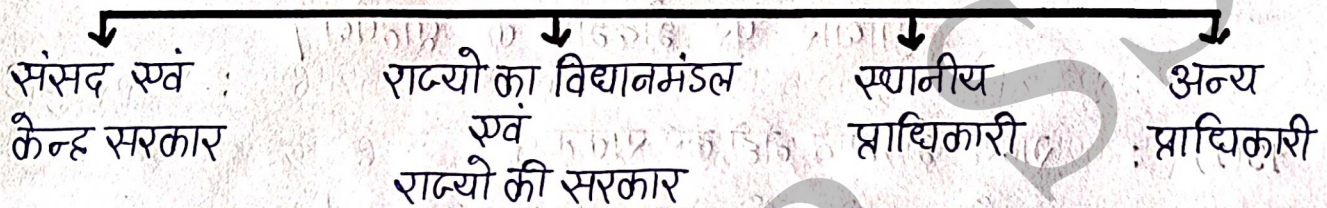 संसद एवं
केन्द्र सरकार
राज्यो का विधानमंडल
एवं
राज्यो की सरकार
स्थानीय
प्राधिकारी
अन्य
प्राधिकारी